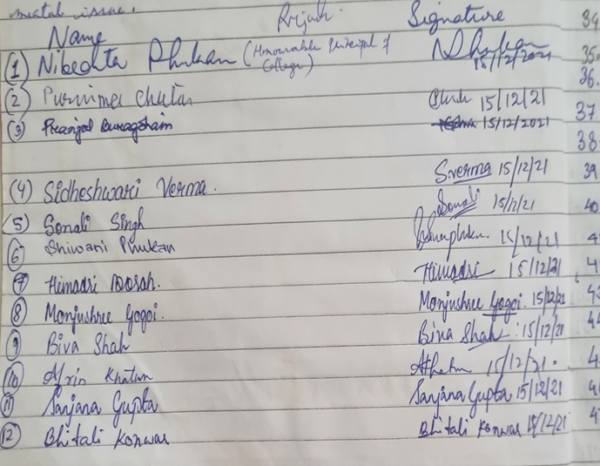 mental issue.
Name Signature 34
(1) Nibedita Phukan (Honourable Principal of College) 15/12/2021 35
36.
(2) Purnima Chutia 15/12/21 37
(3) Pranjal Buragohain 15/12/2021
38
(4) Sidheshwari Verma. Sverma 15/12/21 39
(5) Sonali Singh Sonali 15/12/21 40
6 Shiwani Phukan 15/12/21
7 Himadri Himadri 15/12/21
8 Monjushree Gogoi. Monjushree Gogoi. 15/12/21
9 Biva Shah Biva Shah 15/12/21
10 Afrin Khatun 15/12/21.
11 Sanjana Gupta Sanjana Gupta 15/12/21
12 Bhitali Konwar Bhitali Konwar 15/12/21